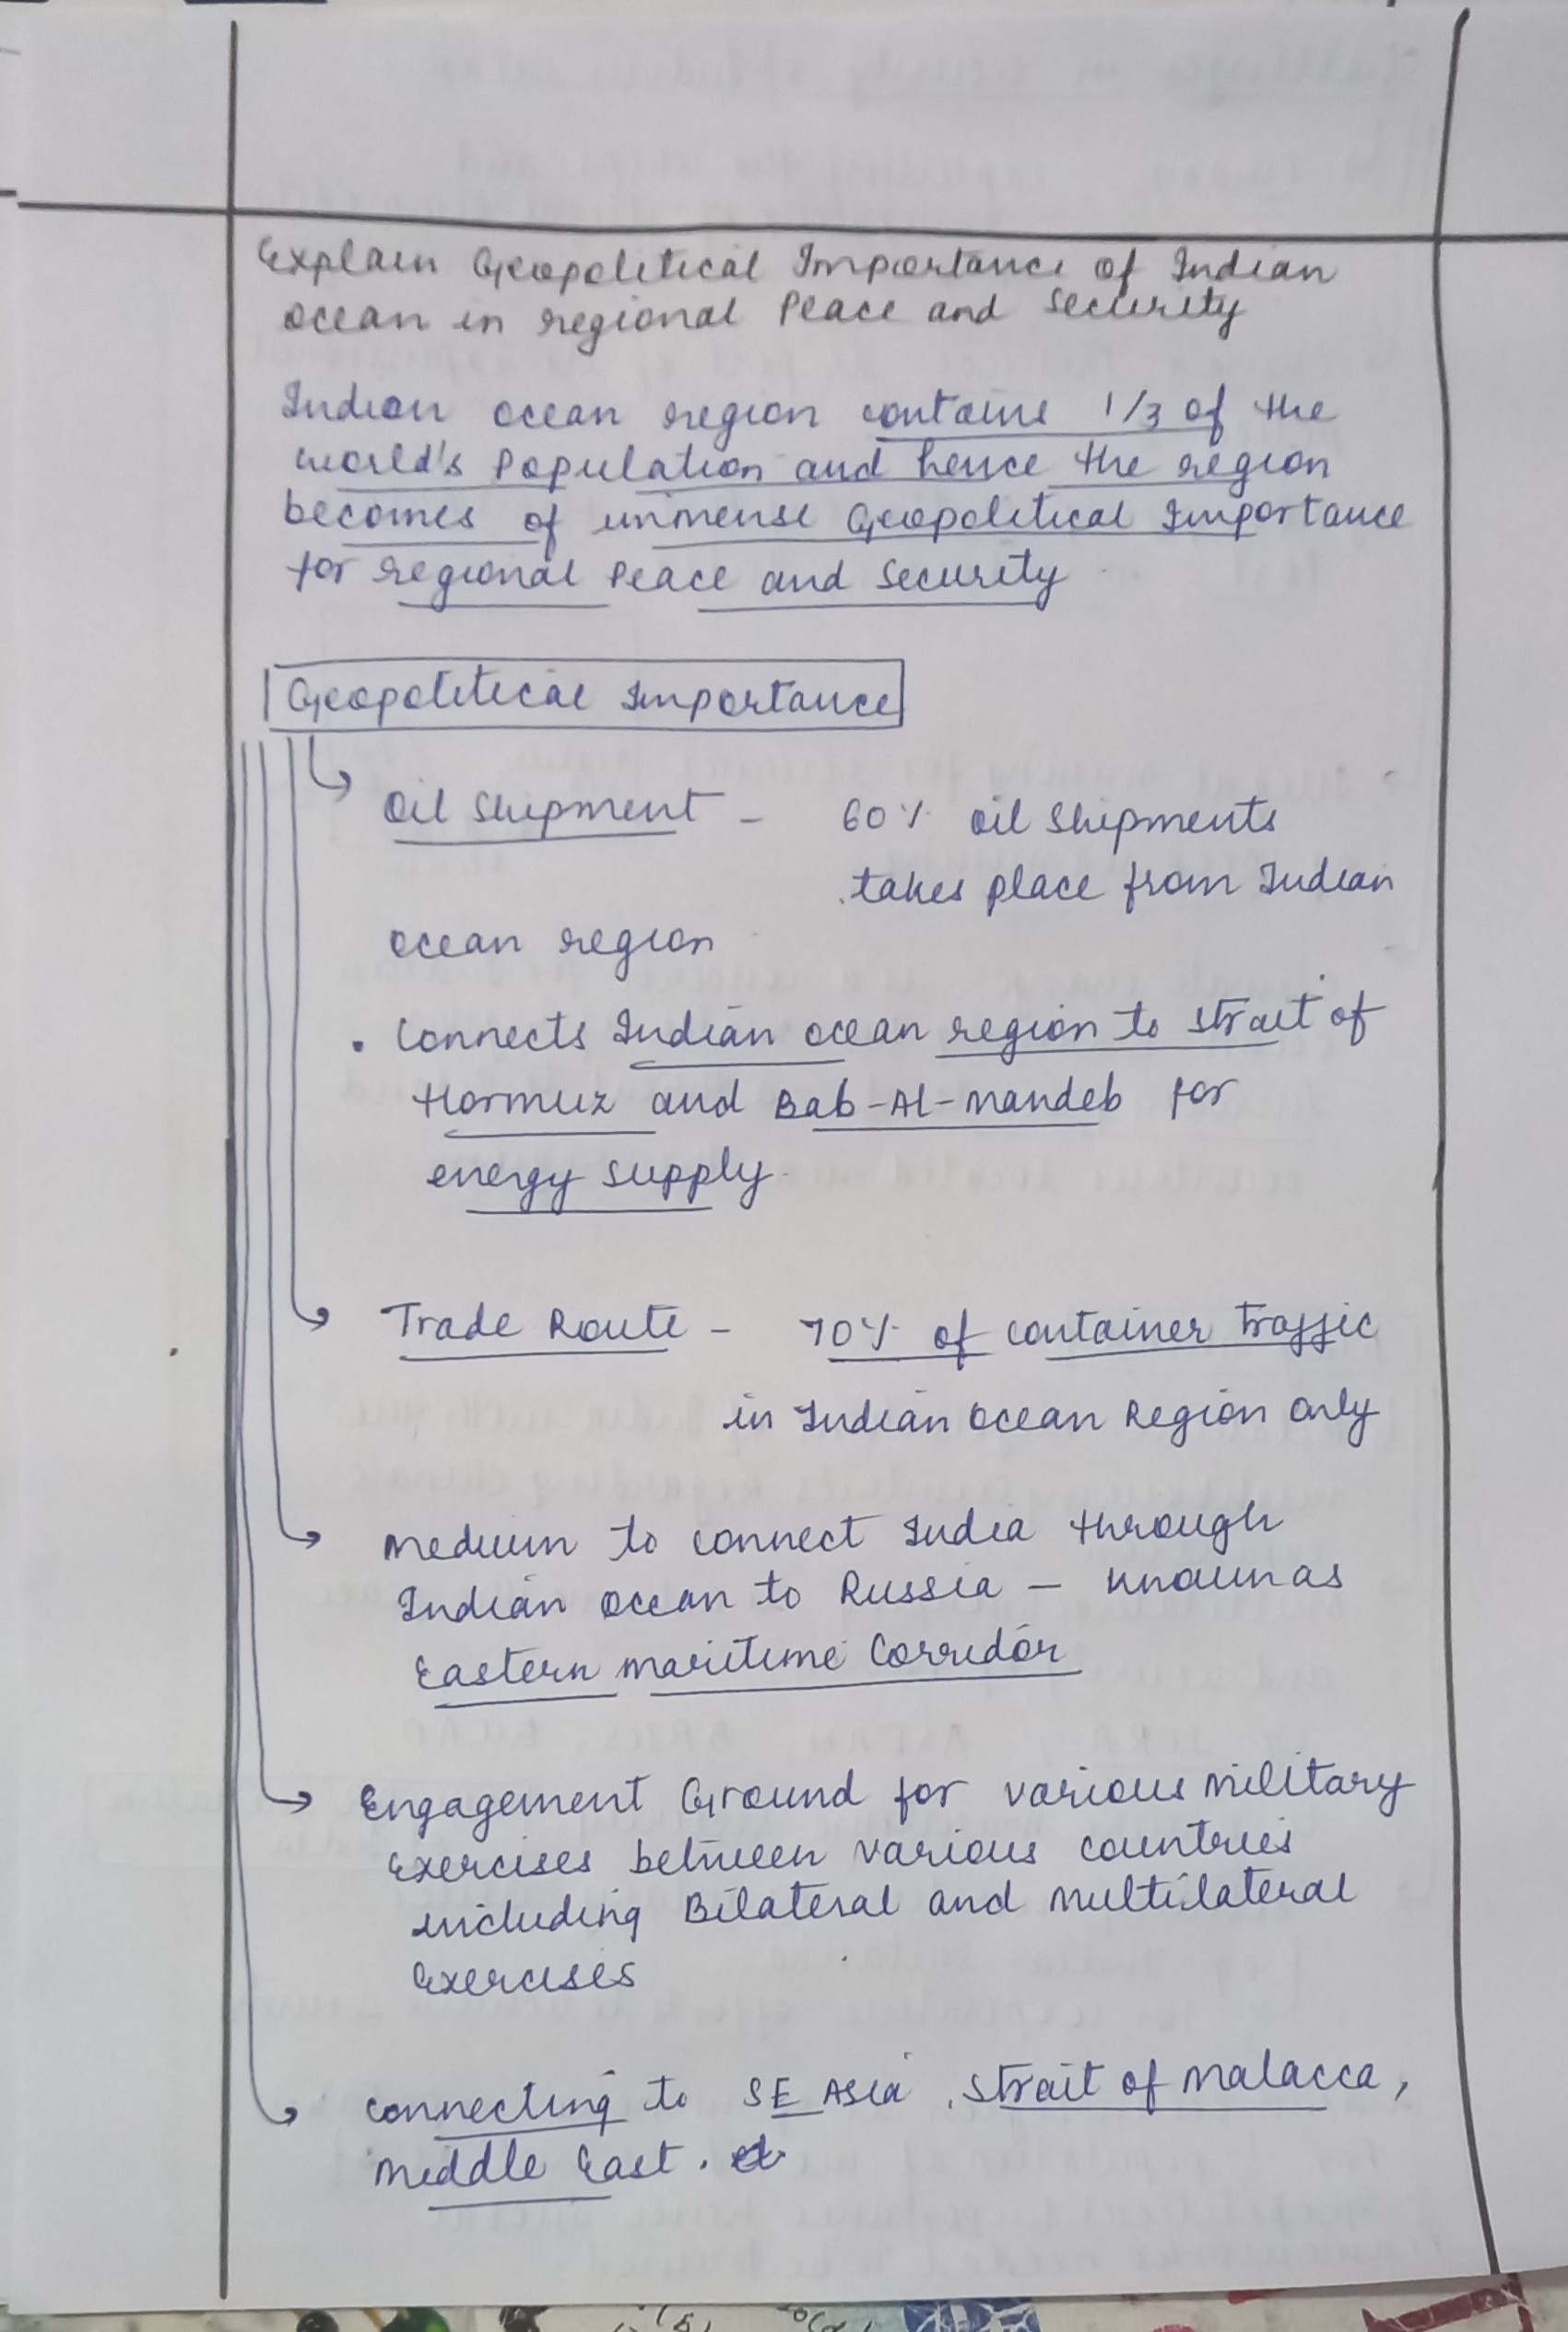 Explain Geopolitical Importance of Indian
Ocean in regional Peace and Security
Indian ocean region contains 1/3 of the
world's Population and hence the region
becomes of immense Geopolitical Importance
for regional Peace and Security
Geopolitical Importance
Oil Shipment - 60% oil Shipments
takes place from Indian
ocean region
• Connects Indian ocean region to strait of
Hormuz and Bab-Al-Mandeb for
energy supply.
Trade Route - 70% of container traffic
in Indian Ocean Region only
Medium to connect India through
Indian Ocean to Russia - known as
Eastern Maritime Corridor
Engagement Ground for various Military
Exercises between various countries
including Bilateral and Multilateral
Exercises
Connecting to SE Asia, Strait of Malacca,
Middle East.